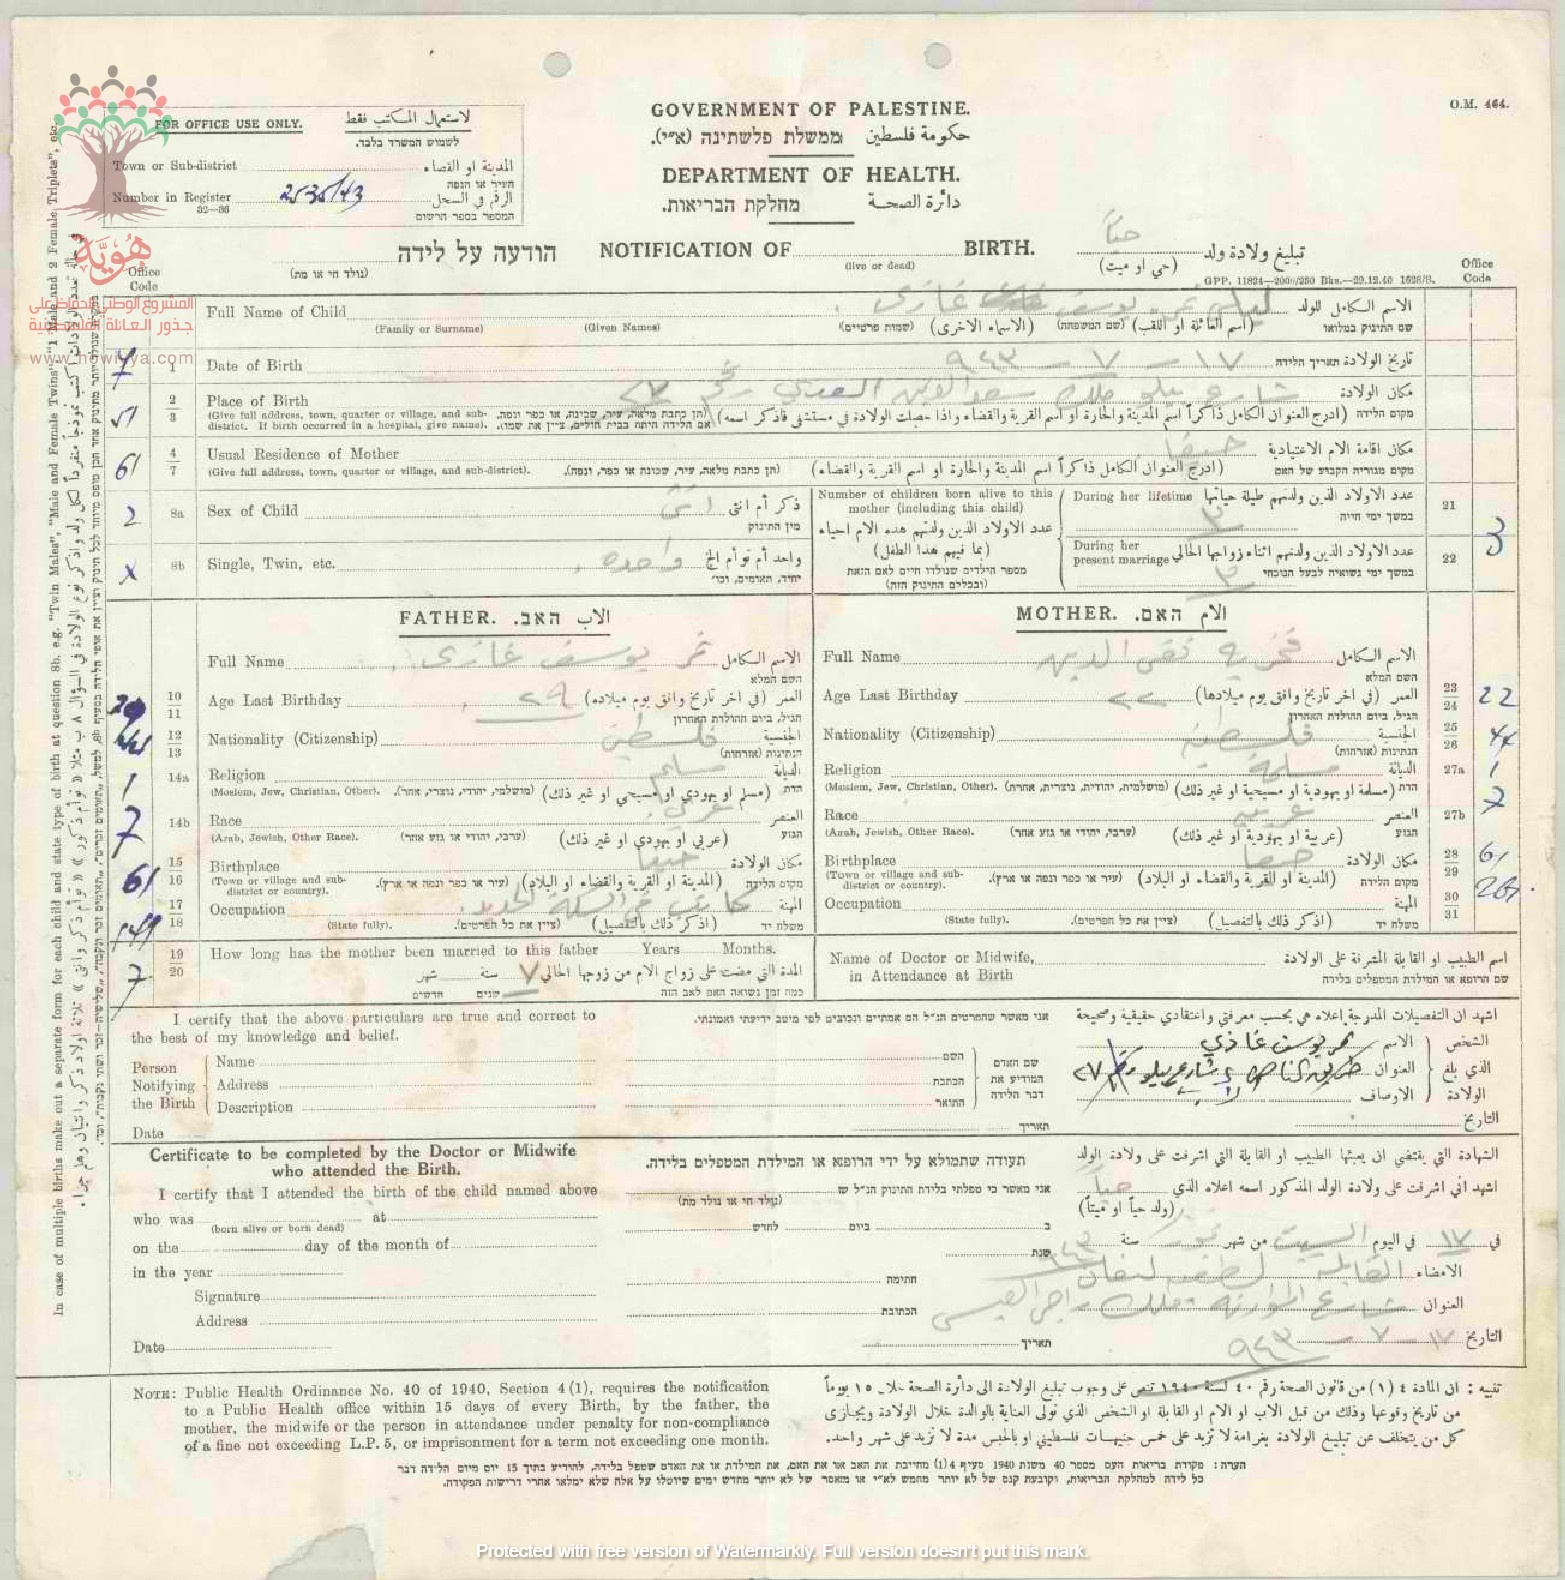 O.M. 464.
FOR OFFICE USE ONLY. لاستعمال المكتب فقط
לשמוש המשרד בלבד.
Town or Sub-district المدينة او القضاء
העיר או הנפה
Number in Register 2535/43 الرقم في السجل
32—36 המספר בספר הרשום
GOVERNMENT OF PALESTINE.
ממשלת פלשתינה (א״י). حكومة فلسطين
DEPARTMENT OF HEALTH.
מחלקת הבריאות. دائرة الصحة
הודעה על לידה NOTIFICATION OF BIRTH. تبليغ ولادة ولد حياً
(נולד חי או מת) (live or dead) (حي او ميت)
GPP. 11824—2000/250 Bks.—29.12.40 1626/S.
Office Code
Office Code
هُويّة
المشروع الوطني للحفاظ على
جذور العائلة الفلسطينية
www.howiyya.com
Full Name of Child يوسف غازي الاسم الكامل للولد
(Family or Surname) (Given Names) (שמות פרטיים) (الاسماء الاخرى) (שם המשפחה) (اسم العائلة او اللقب) שם התינוק במלואו
7 1 Date of Birth ١٧ - ٧ - ٩٤٣ תאריך הלידה تاريخ الولادة
51 2 3 Place of Birth شارع مكان الولادة
(Give full address, town, quarter or village, and sub-district. If birth occurred in a hospital, give name). (תן כתבת מלאה, עיר, שכונה, או כפר ונפה. אם הלידה היתה בבית חולים, ציין את שמו). (ادرج العنوان الكامل ذاكراً اسم المدينة والحارة او اسم القرية والقضاء واذا حصلت الولادة في مستشفى فاذكر اسمه) מקום הלידה
61 4 7 Usual Residence of Mother حيفا مكان اقامة الام الاعتيادية
(Give full address, town, quarter or village, and sub-district). (תן כתבת מלאה, עיר, שכונה או כפר, ונפה). (ادرج العنوان الكامل ذاكراً اسم المدينة والحارة او اسم القرية والقضاء) מקום מגוריה הקבוע של האם
2 8a Sex of Child انثى ذكر أم انثى
מין התינוק
x 8b Single, Twin, etc. واحده واحد أم توأم الخ
יחיד, תאומים, וכו׳
Number of children born alive to this mother (including this child)
عدد الاولاد الذين ولدتهم هذه الام احياء
(بما فيهم هذا الطفل)
מספר הילדים שנולדו חיים לאם הזאת
(ובכללם התינוק הזה)
During her lifetime عدد الاولاد الذين ولدتهم طيلة حياتها 21
במשך ימי חייה
٣
During her present marriage عدد الاولاد الذين ولدتهم اثناء زواجها الحالي 22 3
במשך ימי נשואיה לבעל הנוכחי
٣
FATHER. האב. الاب
Full Name نمر يوسف غازي الاسم الكامل
השם המלא
29 10 11 Age Last Birthday ٢٩ العمر (في اخر تاريخ وافق يوم ميلاده)
הגיל, ביום ההולדת האחרון
12 13 Nationality (Citizenship) الجنسية
הנתינות (אזרחות)
1 14a Religion مسلم الديانة
(Moslem, Jew, Christian, Other). (מושלמי, יהודי, נוצרי, אחר). (مسلم او يهودي او مسيحي او غير ذلك) הדת
7 14b Race عربي العنصر
(Arab, Jewish, Other Race). (ערבי, יהודי או גזע אחר) (عربي او يهودي او غير ذلك) הגזע
61 15 16 Birthplace حيفا مكان الولادة
(Town or village and sub-district or country). (עיר או כפר ונפה או ארץ). (المدينة او القرية والقضاء او البلاد) מקום הלידה
17 18 Occupation كاتب في السكة الحديد المهنة
(State fully). (ציין את כל הפרטים). (اذكر ذلك بالتفصيل) משלח יד
7 19 20 How long has the mother been married to this father Years Months.
المدة التي مضت على زواج الام من زوجها الحالي ٧ سنة شهر
כמה זמן נשואה האם לאב הזה שנים חדשים
MOTHER. האם. الام
Full Name فخريه تقي الدين الاسم الكامل
השם המלא
Age Last Birthday ٢٢ العمر (في اخر تاريخ وافق يوم ميلادها) 23 24 22
הגיל, ביום ההולדת האחרון
Nationality (Citizenship) الجنسية 25 26
הנתינות (אזרחות)
Religion مسلمة الديانة 27a 1
(Moslem, Jew, Christian, Other). (מושלמית, יהודית, נוצרית, אחרת). (مسلمة او يهودية او مسيحية او غير ذلك) הדת
Race عربيه العنصر 27b 7
(Arab, Jewish, Other Race). (ערבי, יהודי או גזע אחר) (عربية او يهودية او غير ذلك) הגזע
Birthplace حيفا مكان الولادة 28 29 61
(Town or village and sub-district or country). (עיר או כפר ונפה או ארץ). (المدينة او القرية والقضاء او البلاد) מקום הלידה
Occupation المهنة 30 31
(State fully). (ציין את כל הפרטים). (اذكر ذلك بالتفصيل) משלח יד
Name of Doctor or Midwife, in Attendance at Birth اسم الطبيب او القابلة المشرفة على الولادة
שם הרופא או המילדת המטפלים בלידה
I certify that the above particulars are true and correct to the best of my knowledge and belief.
אני מאשר שהפרטים הנ״ל הם אמתיים ונכונים לפי מיטב ידיעתי ואמונתי.
اشهد ان التفصيلات المدرجة اعلاه هي بحسب معرفتي واعتقادي حقيقية وصحيحة
Person Notifying the Birth
Name השם
Address הכתבת
Description התואר
שם האדם המודיע את דבר הלידה
الشخص الذي بلغ الولادة
الاسم نمر يوسف غازي
العنوان
الاوصاف
Date תאריך التاريخ
Certificate to be completed by the Doctor or Midwife who attended the Birth.
תעודה שתמולא על ידי הרופא או המילדת המטפלים בלידה.
الشهادة التي يقتضي ان يعبئها الطبيب او القابلة التي اشرفت على ولادة الولد
I certify that I attended the birth of the child named above
who was at
(born alive or born dead)
on the day of the month of
in the year
Signature
Address
Date
אני מאשר כי טפלתי בלידת התינוק הנ״ל ש
(נולד חי או נולד מת)
ב ביום לחדש
שנת
חתימה
הכתובת
תאריך
اشهد اني اشرفت على ولادة الولد المذكور اسمه اعلاه الذي حياً
(ولد حياً او ميتاً)
في ١٧ في اليوم السبت من شهر تموز سنة ٩٤٣
الامضاء القابلة
العنوان شارع
التاريخ ١٧ - ٧ - ٩٤٣
NOTE: Public Health Ordinance No. 40 of 1940, Section 4 (1), requires the notification
to a Public Health office within 15 days of every Birth, by the father, the
mother, the midwife or the person in attendance under penalty for non-compliance
of a fine not exceeding L.P. 5, or imprisonment for a term not exceeding one month.
تنبيه : ان المادة ٤ (١) من قانون الصحة رقم ٤٠ لسنة ١٩٤٠ تنص على وجوب تبليغ الولادة الى دائرة الصحة خلال ١٥ يوماً
من تاريخ وقوعها وذلك من قبل الاب او الام او القابلة او الشخص الذي تولى العناية بالوالدة خلال الولادة ويجازى
كل من يتخلف عن تبليغ الولادة بغرامة لا تزيد على خمس جنيهات فلسطيني او بالحبس مدة لا تزيد على شهر واحد.
הערה : פקודת בריאות העם מספר 40 משנת 1940 סעיף 4(1) מחייבת את האב או את האם, את המילדת או את האדם שטפל בלידה, להודיע בתוך 15 יום מיום הלידה דבר
כל לידה למחלקת הבריאות, וקובעת קנס של לא יותר מחמש לא״י או מאסר של לא יותר מחדש ימים שיוטלו על אלה שלא ימלאו אחרי דרישות הפקודה.
In case of multiple births make out a separate form for each child and state type of birth at question 8b. e.g. "Twin Males", "Male and Female Twins", "1 Male and 2 Female Triplets", etc.
Protected with free version of Watermarkly. Full version doesn't put this mark.